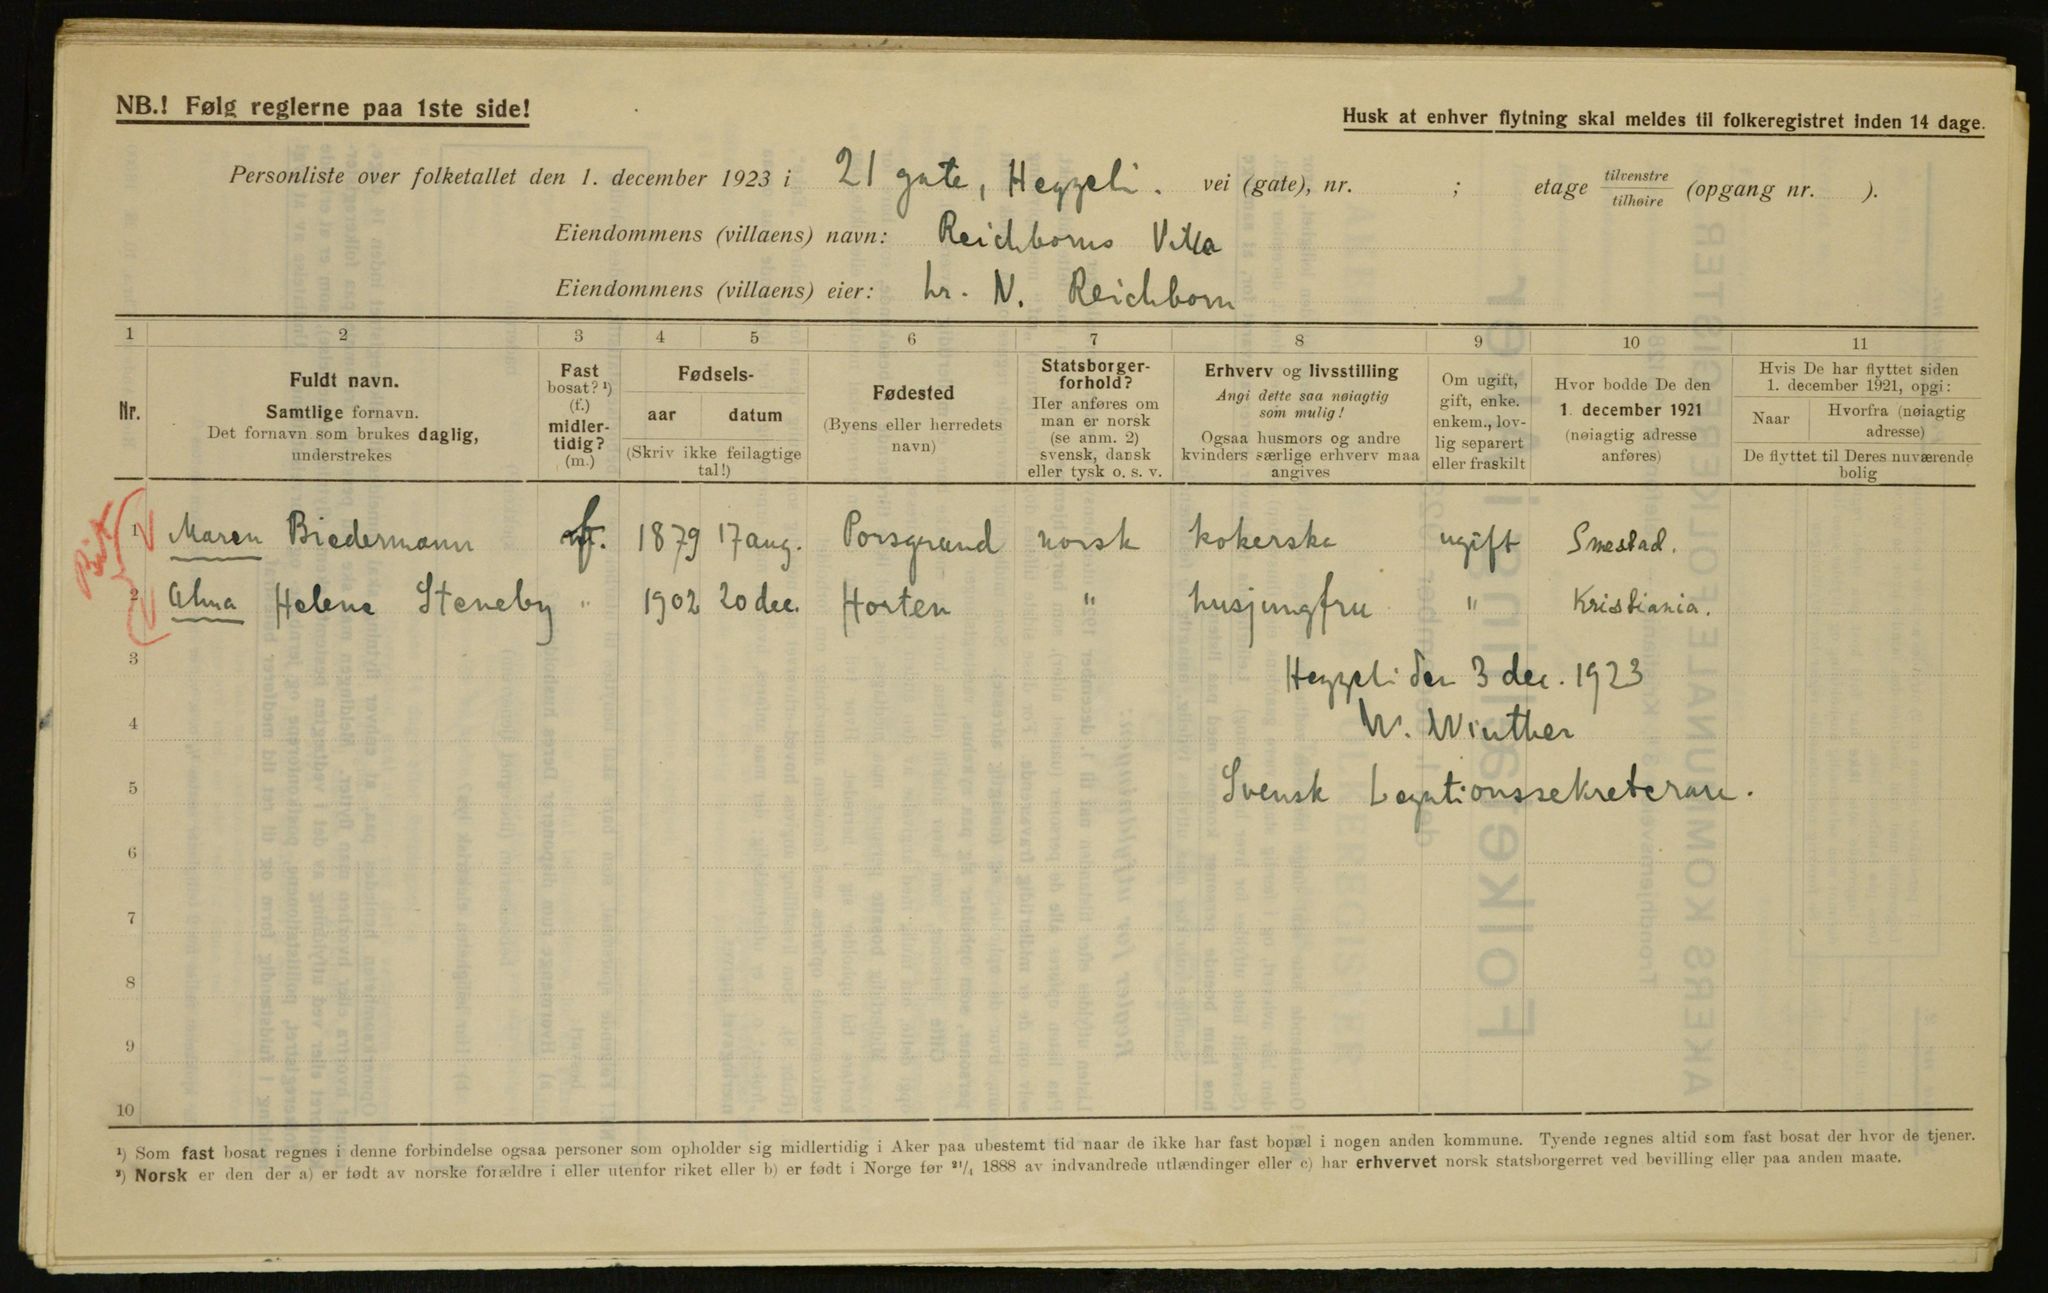 NB.! Følg reglerne paa 1ste side!
Husk at enhver flytning skal meldes til folkeregistret inden 14 dage.
Personliste over folketallet den 1. december 1923 i 21 gate, Heggeli. vei (gate), nr. ; etage tilvenstre/tilhøire (opgang nr. ).
Eiendommens (villaens) navn: Reichborns Villa
Eiendommens (villaens) eier: hr. N. Reichborn
1 2 3 4 5 6 7 8 9 10 11
Nr.
Fuldt navn.
Samtlige fornavn.
Det fornavn som brukes daglig,
understrekes
Fast
bosat? ¹)
(f.)
midler-
tidig?
(m.)
Fødsels-
aar datum
(Skriv ikke feilagtige
tal!)
Fødested
(Byens eller herredets
navn)
Statsborger-
forhold?
Her anføres om
man er norsk
(se anm. 2)
svensk, dansk
eller tysk o. s. v.
Erhverv og livsstilling
Angi dette saa nøiagtig
som mulig!
Ogsaa husmors og andre
kvinders særlige erhverv maa
angives
Om ugift,
gift, enke.
enkem., lov-
lig separert
eller fraskilt
Hvor bodde De den
1. december 1921
(nøiagtig adresse
anføres)
Hvis De har flyttet siden
1. december 1921, opgi:
Naar Hvorfra (nøiagtig
adresse)
De flyttet til Deres nuværende
bolig
1 Maren Biedermann f. 1879 17 aug. Porsgrund norsk kokerska ugift Smestad.
2 Alma Helene Steneby " 1902 20 dec. Horten " husjungfru " Kristiania.
3 Heggeli den 3 dec. 1923
4 W. Winther
5 Svensk Legationssekreterare.
6
7
8
9
10
¹) Som fast bosat regnes i denne forbindelse ogsaa personer som opholder sig midlertidig i Aker paa ubestemt tid naar de ikke har fast bopæl i nogen anden kommune. Tyende regnes altid som fast bosat der hvor de tjener.
²) Norsk er den der a) er født av norske forældre i eller utenfor riket eller b) er født i Norge før 21/4 1888 av indvandrede utlændinger eller c) har erhvervet norsk statsborgerret ved bevilling eller paa anden maate.